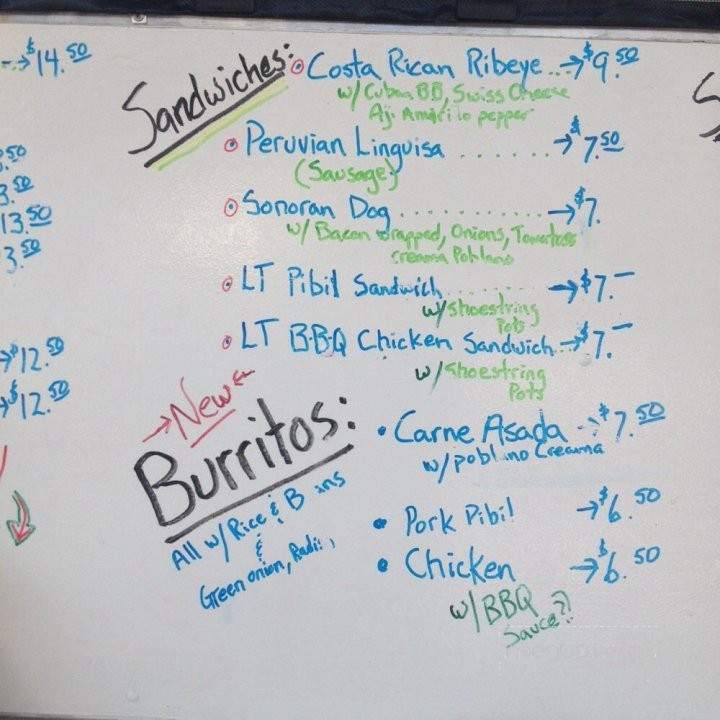 $14.50
.50
3.50
13.50
3.50
$12.50
$12.50
Sandwiches:
Costa Rican Ribeye...→$9.50
w/ Cuban BB, Swiss Cheese
Aji Amarilo pepper
Peruvian Linguisa ......→$7.50
(Sausage)
Sonoran Dog ..........→$7.
w/ Bacon wrapped, Onions,
creama Poblano
LT Pibil Sandwich.......→$7.–
w/shoestring
Pots
LT B·B·Q Chicken Sandwich...→$7.–
w/shoestring
Pots
→New←
Burritos:
All w/ Rice & B ans
&
Green onion, Radis,
Carne Asada →$7.50
w/poblano Creama
Pork Pibil →$6.50
Chicken →$6.50
w/BBQ
Sauce??
S